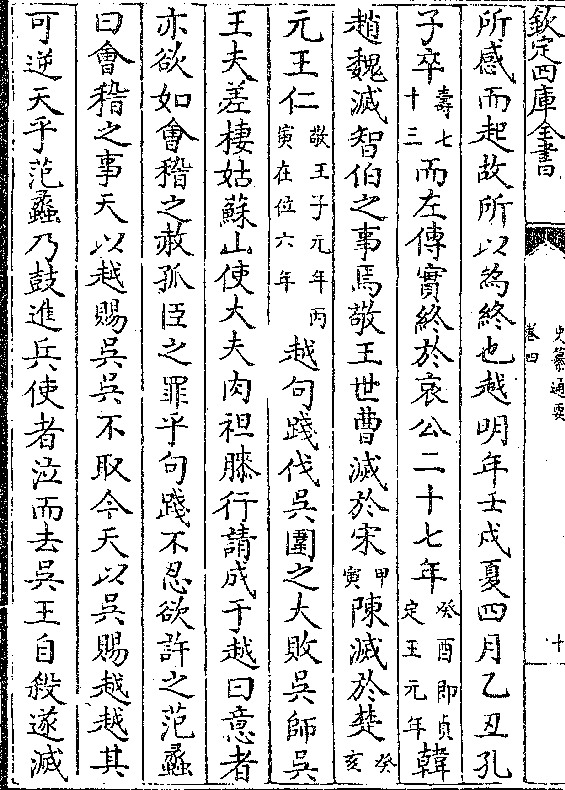 欽定四庫全書
史纂通要
卷四
十
所感而起故所以為終也越明年壬戌夏四月乙丑孔
子卒壽七十三而左傳實終於哀公二十七年癸酉即貞定王元年韓
趙魏滅智伯之事焉敬王世曹滅於宋甲寅陳滅於楚癸亥
元王仁敬王子元年丙寅在位六年越句踐伐吳圍之大敗吳師吳
王夫差棲姑蘇山使大夫肉袒膝行請成于越曰意者
亦欲如會稽之赦孤臣之罪乎句踐不忍欲許之范蠡
曰會稽之事天以越賜吳吳不取今天以吳賜越越其
可逆天乎范蠡乃鼓進兵使者泣而去吳王自殺遂滅